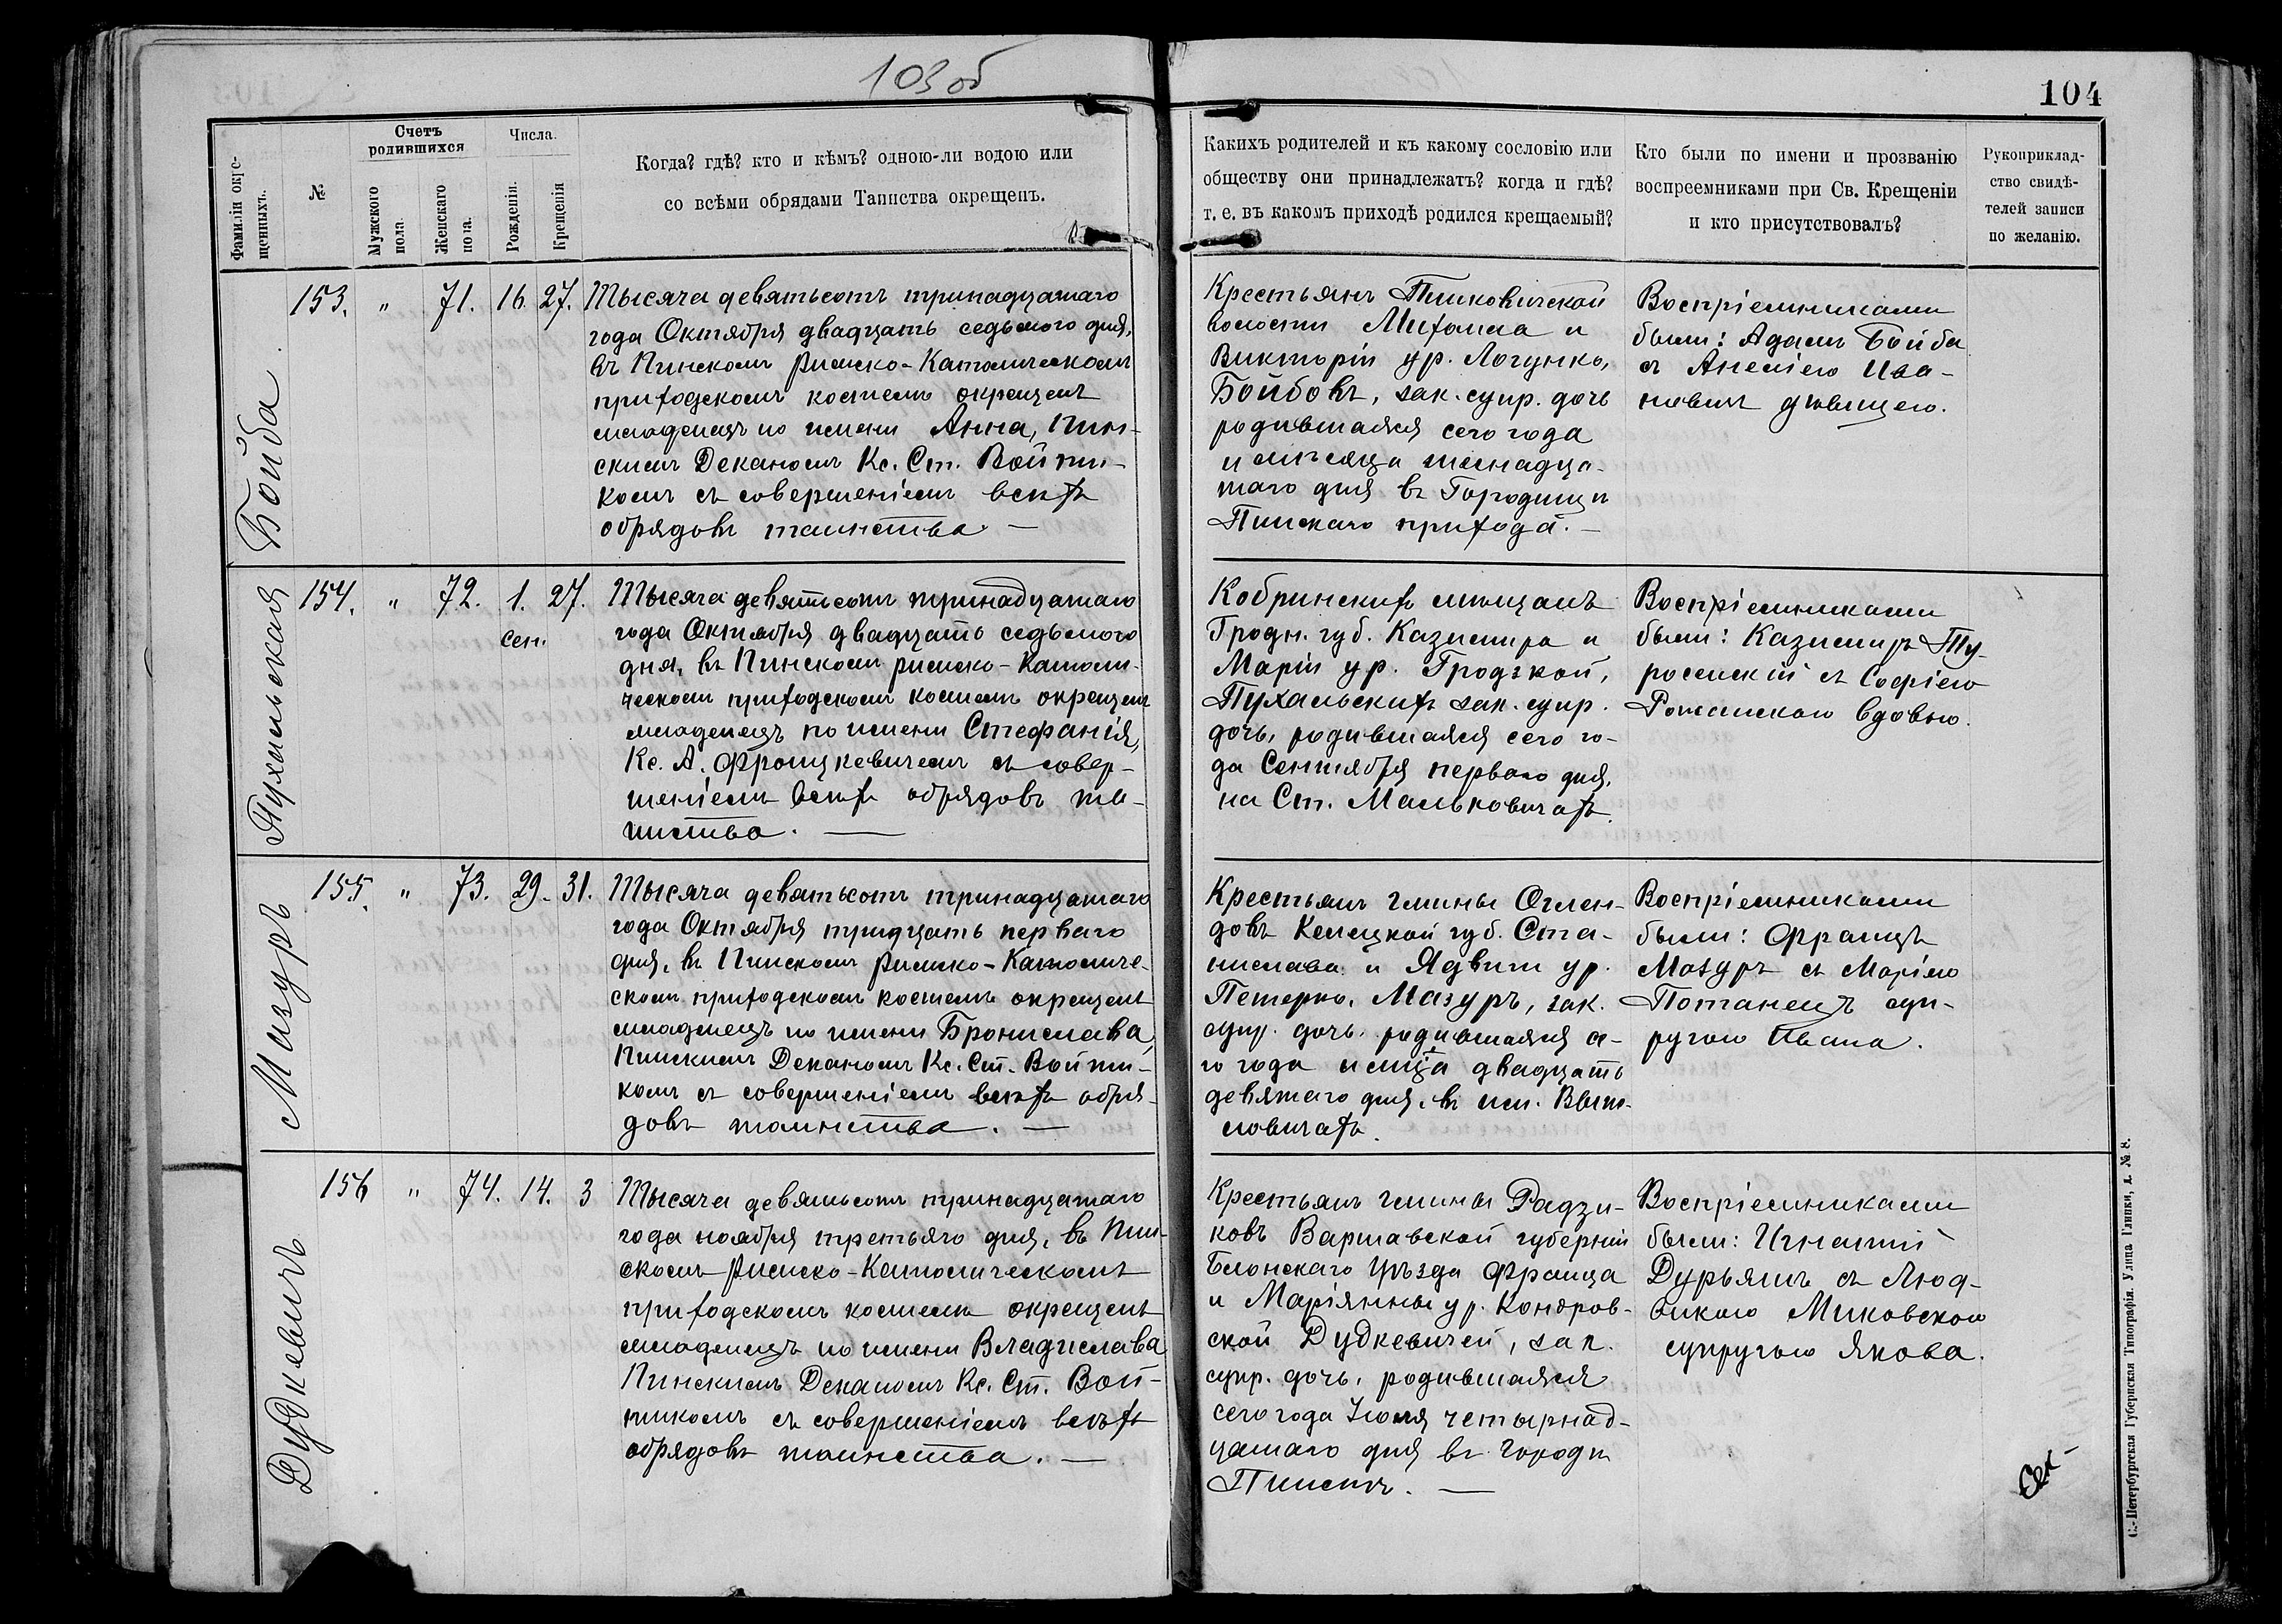 103 об
104
Фамиліи окре-
щенныхъ.
№
Счетъ
родившихся
Мужского
пола.
Женскаго
пола.
Числа.
Рожденія.
Крещенія
Когда? гдѣ? кто и кѣмъ? одною-ли водою или
со всѣми обрядами Таинства окрещенъ.
Каких​ъ родителей и къ какому сословію или
обществу они принадлежатъ? когда и гдѣ?
т. е. въ какомъ приходѣ родился крещаемый?
Кто были по имени и прозванію
воспреемниками при Св. Крещеніи
и кто присутствовалъ?
Рукоприклад-
ство свидѣ-
телей записи
по желанію.
Бойба
153. " 71. 16. 27.
Тысяча девятьсотъ тринадцатаго
года Октября двадцать седьмого дня,
въ Пинскомъ Римско-Католическомъ
приходскомъ костелѣ окрещенъ
младенецъ по имени Анна, Пин-
скимъ Деканомъ Кс. Ст. Войти-
комъ съ совершеніемъ всѣхъ
обрядовъ таинства. —
Крестьянъ Пинковичской
волости Михаила и
Викторіи ур. Логунко,
Бойбовъ, зак. супр. дочь
родившаяся сего года
и мѣсяца шестнадца-
таго дня въ Городищѣ
Пинскаго прихода. —
Воспріемниками
были: Адамъ Бойба
съ Анеліею
дѣвицею.
Пухальская
154. " 72. 1. 27.
сен.
Тысяча девятьсотъ тринадцатаго
года Октября двадцать седьмого
дня, въ Пинскомъ Римско-Католи-
ческомъ приходскомъ костелѣ окрещенъ
младенецъ по имени Стефанія,
Кс. А. Фронцкевичемъ съ совер-
шеніемъ всѣхъ обрядовъ та-
инства. —
Кобринскихъ мѣщанъ
Гродн. губ. Казимира и
Маріи ур. Гродзкой,
Пухальскихъ зак. супр.
дочь, родившаяся сего го-
да Сентября перваго дня,
на Ст. Мальковичахъ.
Воспріемниками
были: Казимиръ Ту-
росенскій съ Софіею
вдовою.
Мазуръ
155. " 73. 29. 31.
Тысяча девятьсотъ тринадцатаго
года Октября тридцать перваго
дня, въ Пинскомъ Римско-Католиче-
скомъ приходскомъ костелѣ окрещенъ
младенецъ по имени Бронислава,
Пинскимъ Деканомъ Кс. Ст. Войти-
комъ съ совершеніемъ всѣхъ обря-
довъ таинства. —
Крестьянъ гмины Оглен-
довъ Келецкой губ. Ста-
нислава и Ядвиги ур.
Петерко, Мазуръ, зак.
супр. дочь, родившаяся се-
го года и мца двадцать
девятаго дня, въ им. Выш-
ловичахъ.
Воспріемниками
были: Францъ
Мазуръ съ Маріею
Потанецъ суп-
ругою Ивана.
Дудкевичъ
156 " 74. 14. 3
Тысяча девятьсотъ тринадцатаго
года ноября третьяго дня, въ Пин-
скомъ Римско-Католическомъ
приходскомъ костелѣ окрещенъ
младенецъ по имени Владислава
Пинскимъ Деканомъ Кс. Ст. Вой-
тикомъ съ совершеніемъ всѣхъ
обрядовъ таинства. —
Крестьянъ гмины Радзи-
ковъ Варшавской губерніи
Блонскаго Уѣзда Франца
и Маріянны ур. Кондров-
ской Дудкевичей, зак.
супр. дочь, родившаяся
сего года Іюля четырнад-
цатаго дня въ городѣ
Пинскѣ. —
Воспріемниками
были: Игнатій
Дурьяшъ съ Люд-
викою Миковскою
супругою Якова.
С.-Петербургская Губернская Типографія. Улица Глинки, д. № 8.